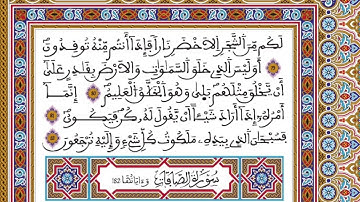 لَكُم مِّنَ ٱلشَّجَرِ ٱلَاخْضَرِ نَارًا فَإِذَآ أَنتُم مِّنْهُ تُوقِدُونَ
أَوَلَيْسَ ٱلذِے خَلَقَ ٱلسَّمَٰوَٰتِ وَٱلَارْضَ بِقَٰدِرٍ عَلَىٰٓ
أَنْ يَّخْلُقَ مِثْلَهُم بَلَىٰ وَهُوَ ٱلْخَلَّٰقُ ٱلْعَلِيمُ إِنَّمَآ
أَمْرُهُۥٓ إِذَآ أَرَادَ شَيْـًٔا اَنْ يَّقُولَ لَهُۥ كُن فَيَكُونُ
فَسُبْحَٰنَ ٱلذِے بِيَدِهِۦ مَلَكُوتُ كُلِّ شَےْءٍ وَإِلَيْهِ تُرْجَعُونَ
سُورَةُ ٱلصَّآفَّاتِ وَءَايَاتُهَا 182